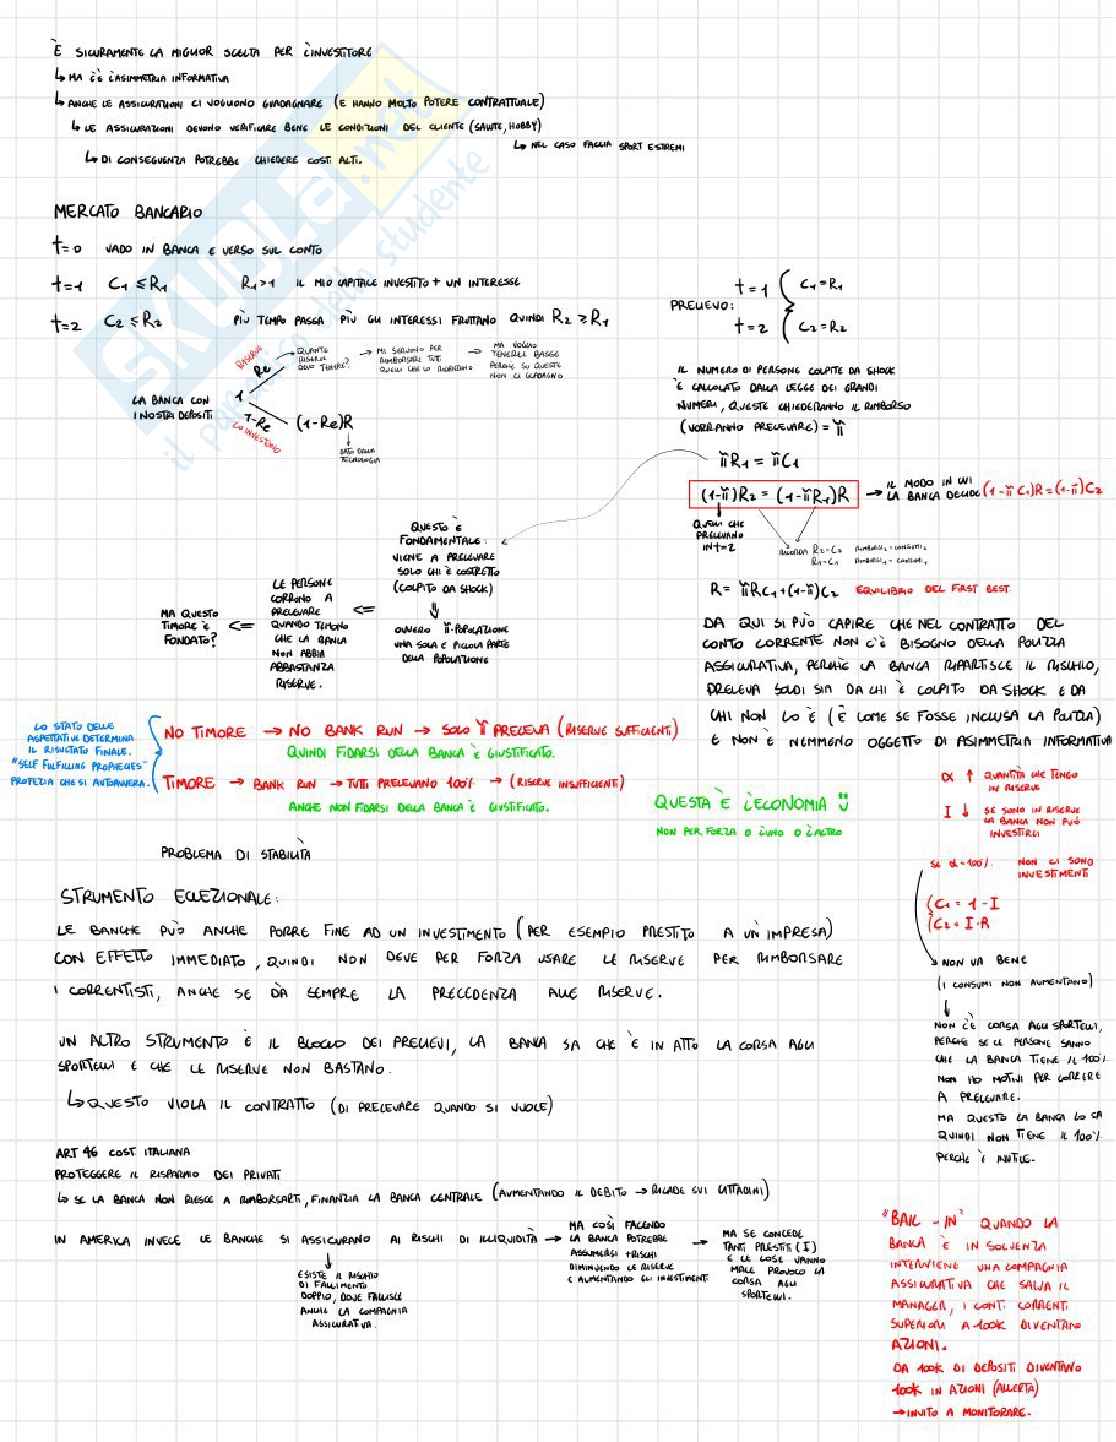 È SICURAMENTE LA MIGLIOR SCELTA PER L'INVESTITORE
↳ MA C'È L'ASIMMETRIA INFORMATIVA
↳ ANCHE LE ASSICURAZIONI CI VOGLIONO GUADAGNARE (E HANNO MOLTO POTERE CONTRATTUALE)
↳ LE ASSICURAZIONI DEVONO VERIFICARE BENE LE CONDIZIONI DEL CLIENTE (SALUTE, HOBBY)
↳ NEL CASO FACCIA SPORT ESTREMI
↳ DI CONSEGUENZA POTREBBE CHIEDERE COSTI ALTI.
SKUOLA.net
il paradiso dello studente
MERCATO BANCARIO
t=0 VADO IN BANCA E VERSO SUL CONTO
t=1 C1 ≤ R1 R1>1 IL MIO CAPITALE INVESTITO + UN INTERESSE
t=2 C2 ≤ R2 PIÙ TEMPO PASSA PIÙ GLI INTERESSI FRUTTANO QUINDI R2 ≥ R1
PRELIEVO:
t=1 { C1=R1
t=2 { C2=R2
LA BANCA CON
I NOSTRI DEPOSITI
1
RISERVE
Re
1-Re
LA INVESTONO
(1-Re)R
DATO DALLA
TECNOLOGIA
QUANTE
RISERVE
DEVO TENERE?
→ MI SERVONO PER
RIMBORSARE TUTTI
QUELLI CHE LO RICHIEDONO
→ MA VOGLIO
TENERLE BASSE
PERCHÉ SU QUESTE
NON CI GUADAGNO
IL NUMERO DI PERSONE COLPITE DA SHOCK
È CALCOLATO DALLA LEGGE DEI GRANDI
NUMERI, QUESTE CHIEDERANNO IL RIMBORSO
(VORRANNO PRELEVARE) = π
πR1 = πC1
(1-π)R2 = (1-πR1)R → IL MODO IN CUI
LA BANCA DECIDE (1-πC1)R=(1-π)C2
QUELLI CHE
PRELEVANO
IN t=2
RICORDA R2=C2
R1=C1
R = πRC1+(1-π)C2 EQUILIBRIO DEL FIRST BEST
QUESTO È
FONDAMENTALE:
VIENE A PRELEVARE
SOLO CHI È COSTRETTO
(COLPITO DA SHOCK)
↓
OVVERO π·POPOLAZIONE
UNA SOLA E PICCOLA PARTE
DELLA POPOLAZIONE
⇐
LE PERSONE
CORRONO A
PRELEVARE
QUANDO TEMONO
CHE LA BANCA
NON ABBIA
ABBASTANZA
RISERVE.
⇐
MA QUESTO
TIMORE È
FONDATO?
DA QUI SI PUÒ CAPIRE CHE NEL CONTRATTO DEL
CONTO CORRENTE NON C'È BISOGNO DELLA POLIZZA
ASSICURATIVA, PERCHÉ LA BANCA RIPARTISCE IL RISCHIO,
PRELEVA SOLDI SIA DA CHI È COLPITO DA SHOCK E DA
CHI NON LO È (È COME SE FOSSE INCLUSA LA POLIZZA)
E NON È NEMMENO OGGETTO DI ASIMMETRIA INFORMATIVA
LO STATO DELLE
ASPETTATIVE DETERMINA
IL RISULTATO FINALE.
"SELF FULFILLING PROPHECIES"
PROFEZIA CHE SI AUTOAVVERA.
NO TIMORE → NO BANK RUN → SOLO π PRELEVA (RISERVE SUFFICIENTI)
QUINDI FIDARSI DELLA BANCA È GIUSTIFICATO.
TIMORE → BANK RUN → TUTTI PRELEVANO 100% → (RISERVE INSUFFICIENTI)
ANCHE NON FIDARSI DELLA BANCA È GIUSTIFICATO.
QUESTA È L'ECONOMIA
NON PER FORZA O L'UNO O L'ALTRO
α ↑ QUANTITÀ CHE TENGO
IN RISERVE
I ↓ SE SONO IN RISERVE
LA BANCA NON PUÒ
INVESTIRCI
SE α=100% NON CI SONO
INVESTIMENTI
{C1 = 1-I
{C2 = I·R
NON VA BENE
(I CONSUMI NON AUMENTANO)
↓
NON C'È CORSA AGLI SPORTELLI,
PERCHÉ SE LE PERSONE SANNO
CHE LA BANCA TIENE IL 100%
NON HO MOTIVI PER CORRERE
A PRELEVARE.
MA QUESTO LA BANCA LO SA
QUINDI NON TIENE IL 100%
PERCHÉ È INUTILE.
PROBLEMA DI STABILITÀ
STRUMENTO ECCEZIONALE:
LE BANCHE PUÒ ANCHE PORRE FINE AD UN INVESTIMENTO (PER ESEMPIO PRESTITO A UN'IMPRESA)
CON EFFETTO IMMEDIATO, QUINDI NON DEVE PER FORZA USARE LE RISERVE PER RIMBORSARE
I CORRENTISTI, ANCHE SE DÀ SEMPRE LA PRECEDENZA ALLE RISERVE.
UN ALTRO STRUMENTO È IL BLOCCO DEI PRELIEVI, LA BANCA SA CHE È IN ATTO LA CORSA AGLI
SPORTELLI E CHE LE RISERVE NON BASTANO.
↳ QUESTO VIOLA IL CONTRATTO (DI PRELEVARE QUANDO SI VUOLE)
ART 46 COST ITALIANA
PROTEGGERE IL RISPARMIO DEI PRIVATI
↳ SE LA BANCA NON RIESCE A RIMBORSARTI, FINANZIA LA BANCA CENTRALE (AUMENTANDO IL DEBITO → RICADE SUI CITTADINI)
IN AMERICA INVECE LE BANCHE SI ASSICURANO AI RISCHI DI ILLIQUIDITÀ →
↓
ESISTE IL RISCHIO
DI FALLIMENTO
DOPPIO, DOVE FALLISCE
ANCHE LA COMPAGNIA
ASSICURATIVA.
MA COSÌ FACENDO
LA BANCA POTREBBE
ASSUMERSI +RISCHI
DIMINUENDO LE RISERVE
E AUMENTANDO GLI INVESTIMENTI
→ MA SE CONCEDE
TANTI PRESTITI (I)
E LE COSE VANNO
MALE PROVOCO LA
CORSA AGLI
SPORTELLI.
"BAIL-IN" QUANDO LA
BANCA È IN SOLVENZA
INTERVIENE UNA COMPAGNIA
ASSICURATIVA CHE SALVA IL
MANAGER, I CONTI CORRENTI
SUPERIORI A 100K DIVENTANO
AZIONI.
DA 100K DI DEPOSITI DIVENTANO
100K IN AZIONI (ALLERTA)
→ INVITO A MONITORARE.